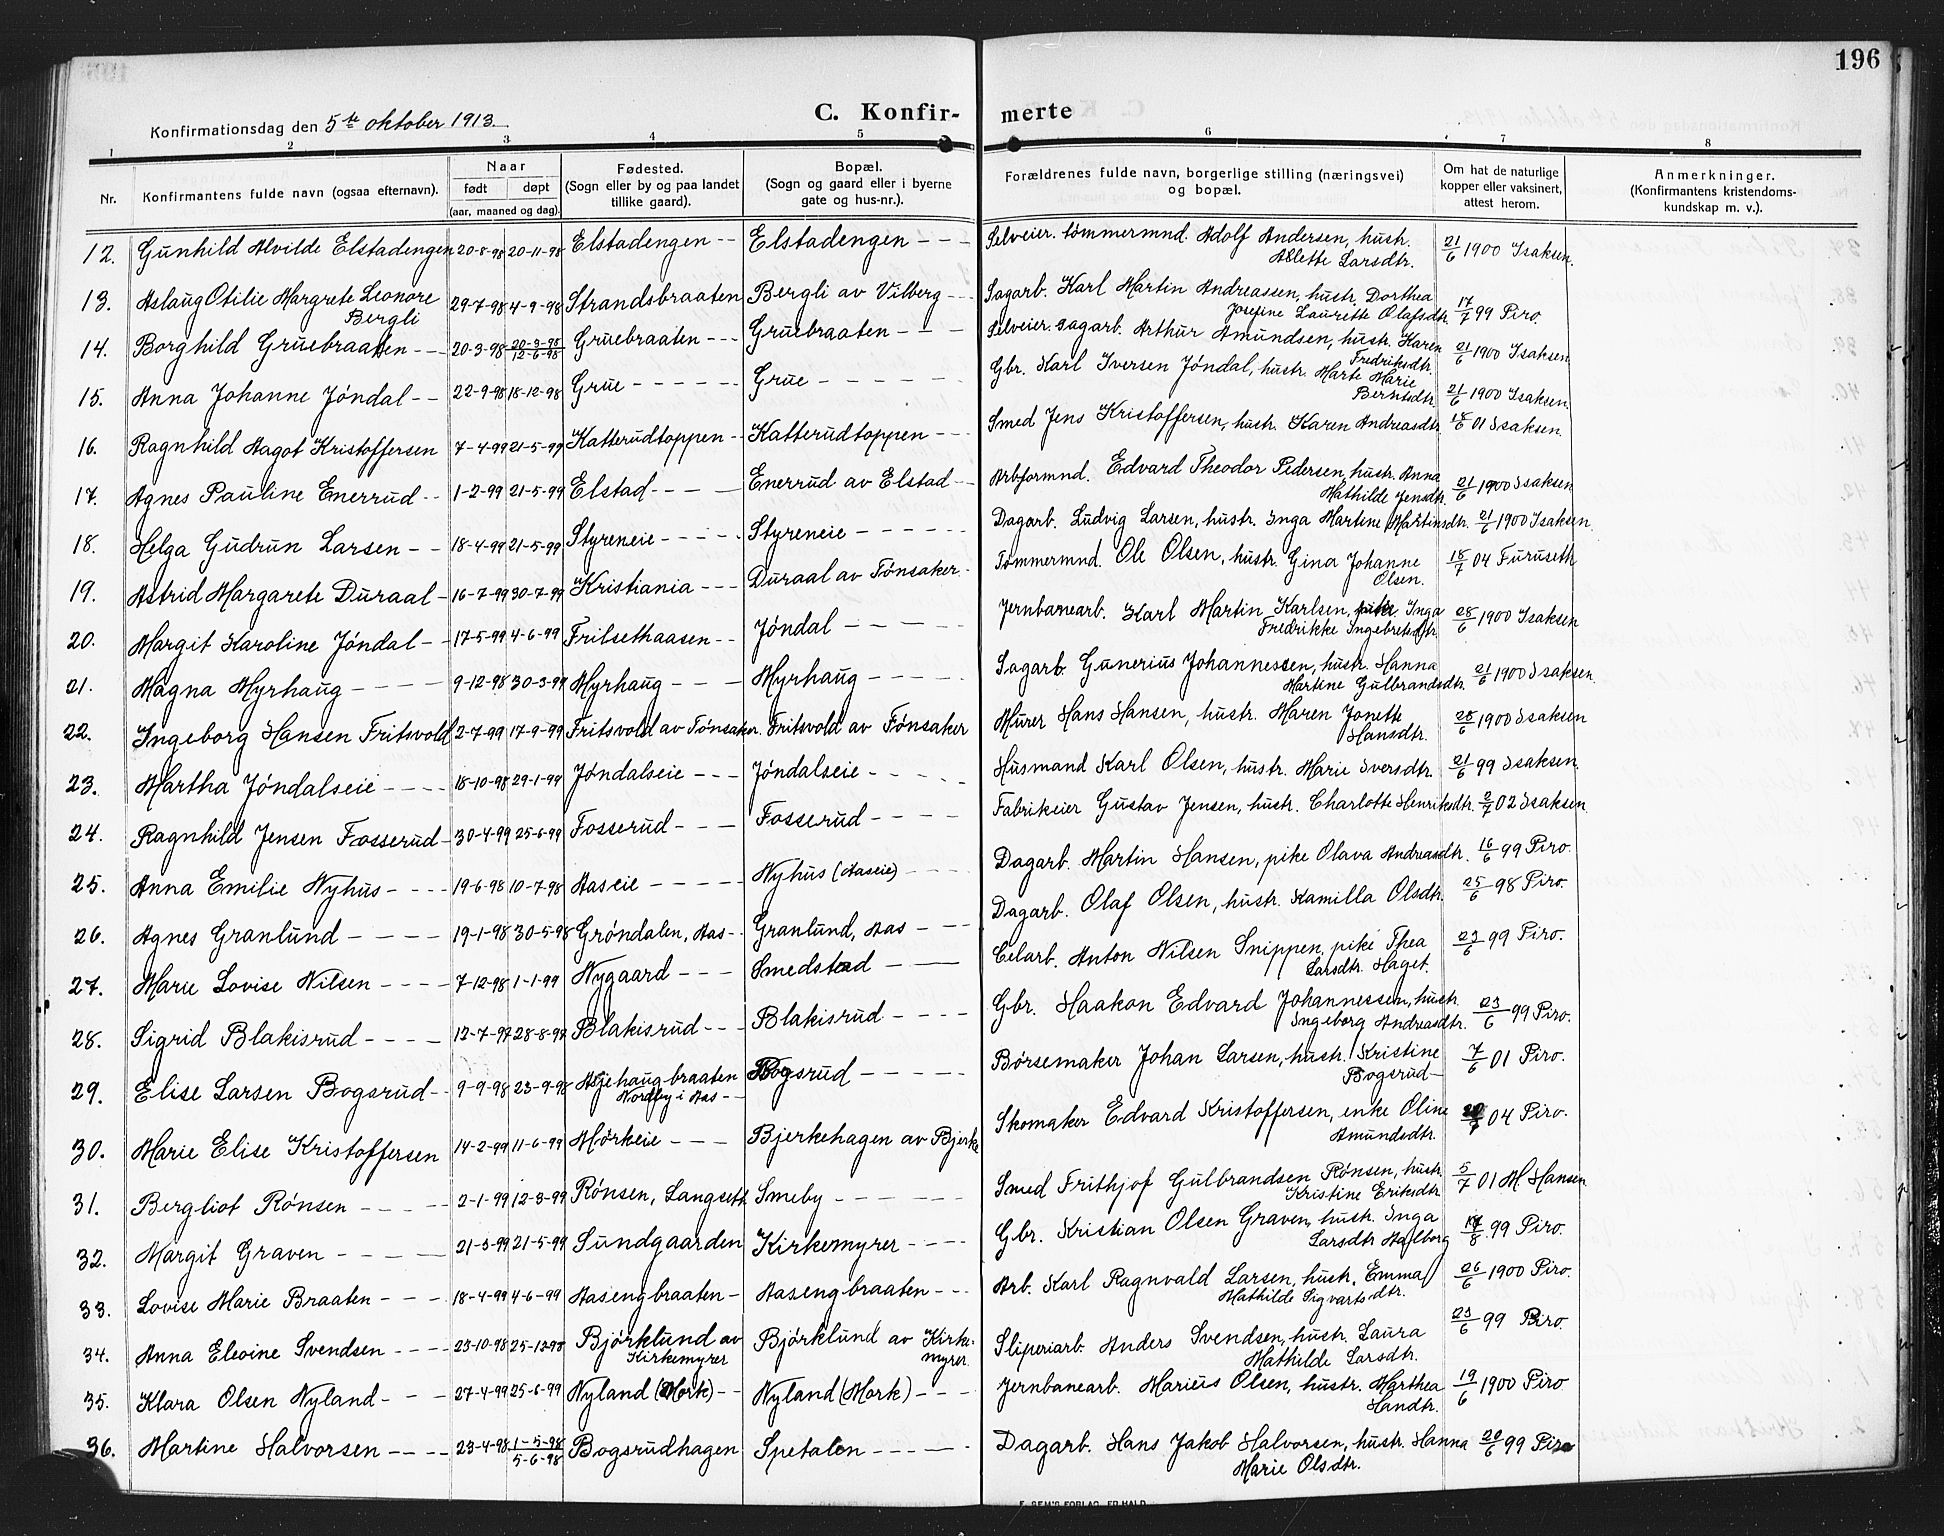 196
Konfirmationsdag den 5te oktober 1913.
C. Konfir- merte
1 2 3 4 5 6 7 8
Nr. Konfirmantens fulde navn (ogsaa efternavn). Naar født døpt (aar, maaned og dag). Fødested. (Sogn eller by og paa landet tillike gaard). Bopæl. (Sogn og gaard eller i byerne gate og hus-nr.). Forældrenes fulde navn, borgerlige stilling (næringsvei) og bopæl. Om hat de naturlige kopper eller vaksinert, attest herom. Anmerkninger. (Konfirmantens kristendoms- kundskap m. v.).
12. Gunhild Alvilde Elstadengen 20-8-98 20-11-98 Elstadengen -- Elstadengen --- Selveier. tømmermnd. Adolf Andersen, hustr. Ablette Larsdtr. 21/6 1900 Isaksen.
13. Aslaug Otilie Margrete Leonore Bergli 29-7-98 4-9-98 Strandsbraaten Bergli av Vilberg -- Sagarb. Karl Martin Andreassen, hustr. Dorthea Josefine Laurette Olafsdtr. 17/7 99 Piro.
14. Borghild Gruebraaten --- 20-3-98 20-3-98 12-6-98 Gruebraaten --- Gruebraaten --- Selveier. sagarb. Arthur Amundsen, hustr. Karen Fredriksdtr. 21/6 1900 Isaksen
15. Anna Johanne Jóndal -- 22-9-98 18-12-98 Grue ----- Grue ----- Gbr. Karl Iversen Jóndal, hustr. Marte Marie Berntsdtr. 21/6 1900 Isaksen.
16. Ragnhild Aagot Kristoffersen 7-4-99 21-5-99 Katterudtoppen -- Katterudtoppen --- Smed Jens Kristoffersen, hustr. Karen Andreasdtr. 18/6 01 Isaksen.
17. Agnes Pauline Enerrud -- 1-2-99 21-5-99 Elstad --- Enerrud av Elstad -- Arbformnd. Edvard Theodor Pedersen, hustr. Anna Mathilde Jensdtr. 21/6 1900 Isaksen
18. Helga Gudrun Larsen -- 18-4-99 21-5-99 Styreneie ---- Styreneie ---- Dagarb. Ludvig Larsen, hustr. Inga Martine Martinsdtr. 21/6 1900 Isaksen.
19. Astrid Margarete Duraal - 16-7-99 30-7-99 Kristiania --- Duraal av Tónsaker - Tømmermnd. Ole Olsen, hustr. Gina Johanne Olsen. 18/7 04 Furuseth
20. Margit Karoline Jóndal -- 17-5-99 4-6-99 Frilsethaasen -- Jóndal ---- Jernbanearb. Karl Martin Karlsen, pike Inga Fredrikke Ingebretsdtr. 28/6 1900 Isaksen
21. Magna Myrhaug ---- 9-12-98 30-3-99 Myrhaug --- Myrhaug ---- Sagarb. Gunerius Johannessen, hustr. Hanna Martine Gulbrandsdtr. 21/6 1900 Isaksen.
22. Ingeborg Hansen Fritsvold 2-7-99 17-9-99 Fritsvold av Tónsaker. Fritsvold av Tónsaker Murer Hans Hansen, hustr. Maren Jonette Hansdtr. 28/6 1900 Isaksen
23. Martha Jóndalseie ---- 18-10-98 29-1-99 Jóndalseie --- Jóndalseie ---- Husmand Karl Olsen, hustr. Marie Iversdtr. 21/6 99 Isaksen.
24. Ragnhild Jensen Fosserud - 30-4-99 25-6-99 Fosserud --- Fosserud ---- Fabrikeier Gustav Jensen, hustr. Charlotte Henriksdtr. 2/7 02 Isaksen.
25. Anna Emilie Nyhus ---- 19-6-98 10-7-98 Aaseie ---- Nyhus (Aaseie) --- Dagarb. Martin Hansen, pike Olava Andreasdtr. 16/6 99 Piro.
26. Agnes Granlund ---- 19-1-98 30-5-98 Gróndalen, Aas -- Granlund, Aas --- Dagarb. Olaf Olsen, hustr. Kamilla Olsdtr. 25/6 98 Piro.
27. Marie Lovise Nilsen ---- 7-12-98 1-1-99 Nygaard --- Smedstad --- Celarb. Anton Nilsen Snippen, pike Thea Larsdtr. Haget. 23/6 99 Piro.
28. Sigrid Blakisrud ---- 12-7-97 28-8-97 Blakisrud --- Blakisrud ---- Gbr. Haakon Edvard Johannessen, hustr. Ingeborg Andreasdtr. 23/6 99 Piro.
29. Elise Larsen Bogsrud -- 9-9-98 23-9-98 Asjehaugbraaten Nordby i Aas -- Bogsrud ----- Børsemaker Johan Larsen, hustr. Kristine Bogsrud - 7/6 01 Piro.
30. Marie Elise Kristoffersen 14-2-99 11-6-99 Mórkeie --- Bjerkehagen av Bjerke Skomaker Edvard Kristoffersen, enke Oline Amundsdtr. 04 Piro.
31. Bergliot Rónsen ---- 2-1-99 12-3-99 Rónsen, Langseth Smeby ----- Smed Frithjof Gulbrandsen Rónsen, hustr. Kristine Eriksdtr. 5/7 01 M. Hansen
32. Margit Graven ---- 21-3-99 21-5-99 Sundgaarden Kirkemyrer ---- Gbr. Kristian Olsen Graven, hustr. Inga Larsdtr Aalborg 14/8 99 Piro.
33. Lovise Marie Braaten --- 18-4-99 4-6-99 Aasengbraaten - Aasengbraaten --- Arb. Karl Ragnvald Larsen, hustr. Emma Mathilde Sigvartsdtr. 26/6 1900 Piro.
34. Anna Eleoine Svendsen ---- 23-10-98 25-12-98 Bjórklund av Kirkemyrer Bjórklund av Kirke- myrer. Sliperiarb. Anders Svendsen, hustr. Laura Mathilde Larsdtr. 23/6 99 Piro.
35. Klara Olsen Nyland --- 27-4-99 25-6-99 Nyland (Mork) -- Nyland (Mork) --- Jernbanearb. Marius Olsen, hustr. Marthea Handtr. 19/6 1900 Piro
36. Martine Halvorsen ---- 23-4-98 1-5-98 5-6-98 Bogsrudhagen Spetalen ----- Dagarb. Hans Jakob Halvorsen, hustr. Hanna Marie Olsdtr. 20/6 99 Piro